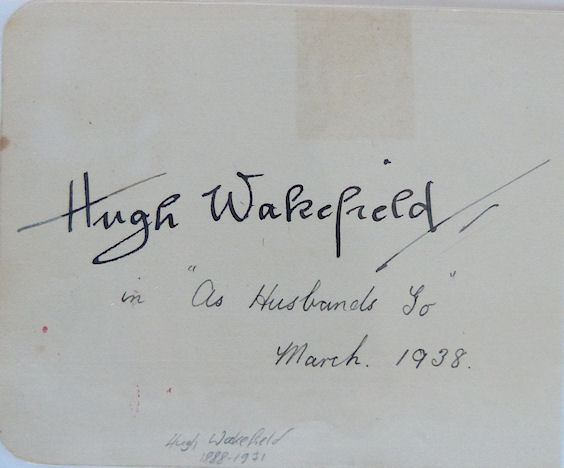 Hugh Wakefield
in "As Husbands Go"
March. 1938.
Hugh Wakefield
1888-1971